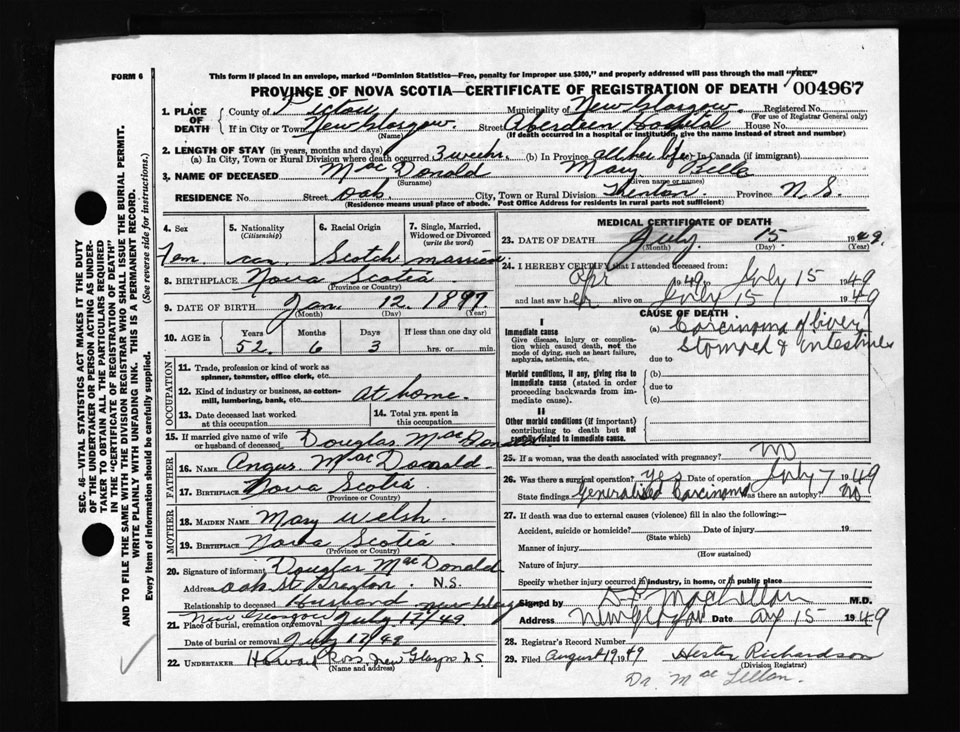 FORM 6
This form if placed in an envelope, marked "Dominion Statistics—Free, penalty for improper use $300," and properly addressed will pass through the mail "FREE"
PROVINCE OF NOVA SCOTIA—CERTIFICATE OF REGISTRATION OF DEATH 004967
1. PLACE OF DEATH
County of Pictou Municipality of New Glasgow Registered No.
(For use of Registrar General only)
If in City or Town New Glasgow. Street Aberdeen Hospital House No.
(Name) (If death occurred in a hospital or institution, give the name instead of street and number)
2. LENGTH OF STAY (in years, months and days)
(a) In City, Town or Rural Division where death occurred 3 weeks. (b) In Province all her life (c) In Canada (if immigrant)
3. NAME OF DECEASED MacDonald Mary Belle
(Surname) (Given name or names)
RESIDENCE No. Street Oak City, Town or Rural Division Province N.S.
(Residence means usual place of abode. Post Office Address for residents in rural parts not sufficient)
4. Sex
Fem
5. Nationality
(Citizenship)
can.
6. Racial Origin
Scotch
7. Single, Married, Widowed or Divorced
(write the word)
married
8. BIRTHPLACE Nova Scotia
(Province or Country)
9. DATE OF BIRTH Jan. 12. 1897
(Month) (Day) (Year)
10. AGE in Years Months Days If less than one day old
52. 6 3 hrs. or min.
OCCUPATION
11. Trade, profession or kind of work as spinner, teamster, office clerk, etc.
12. Kind of industry or business, as cotton-mill, lumbering, bank, etc. at home.
13. Date deceased last worked at this occupation
14. Total yrs. spent in this occupation
15. If married give name of wife or husband of deceased Douglas MacDonald
FATHER
16. NAME Angus MacDonald.
17. BIRTHPLACE Nova Scotia
(Province or Country)
MOTHER
18. MAIDEN NAME Mary Welsh.
19. BIRTHPLACE Nova Scotia
(Province or Country)
20. Signature of informant Douglas MacDonald
Address Oak St. N.S.
Relationship to deceased Husband New Glasgow
New Glasgow
21. Place of burial, cremation or removal July 17/49
Date of burial or removal July 17/49
22. UNDERTAKER Ross, New Glasgow N.S.
(Name and address)
MEDICAL CERTIFICATE OF DEATH
23. DATE OF DEATH July 15 1949
(Month) (Day) (Year)
24. I HEREBY CERTIFY that I attended deceased from:
Apr 1949 to July 15 1949
and last saw her alive on July 15 1949
CAUSE OF DEATH
I
Immediate cause
Give disease, injury or complication which caused death, not the mode of dying, such as heart failure, asphyxia, asthenia, etc.
(a) Carcinoma of liver
Stomach & intestines
due to
Morbid conditions, if any, giving rise to immediate cause (stated in order proceeding backwards from immediate cause).
(b)
due to
(c)
II
Other morbid conditions (if important) contributing to death but not causally related to immediate cause.
25. If a woman, was the death associated with pregnancy? no
26. Was there a surgical operation? yes Date of operation July 7 1949
State findings Generalised Carcinoma was there an autopsy? no
27. If death was due to external causes (violence) fill in also the following:—
Accident, suicide or homicide? Date of injury 19
(State which)
Manner of injury
(How sustained)
Nature of injury
Specify whether injury occurred in industry, in home, or in public place
Signed by M.D.
Address New Glasgow Date Aug 15 1949
28. Registrar's Record Number
29. Filed August 19 1949 Hester Richardson
(Division Registrar)
Dr. MacLellan.
SEC. 46—VITAL STATISTICS ACT MAKES IT THE DUTY
OF THE UNDERTAKER OR PERSON ACTING AS UNDER-
TAKER TO OBTAIN ALL THE PARTICULARS REQUIRED
IN THE "CERTIFICATE OF REGISTRATION OF DEATH"
AND TO FILE THE SAME WITH THE DIVISION REGISTRAR WHO SHALL ISSUE THE BURIAL PERMIT.
WRITE PLAINLY WITH UNFADING INK. THIS IS A PERMANENT RECORD.
Every item of information should be carefully supplied. (See reverse side for instructions.)